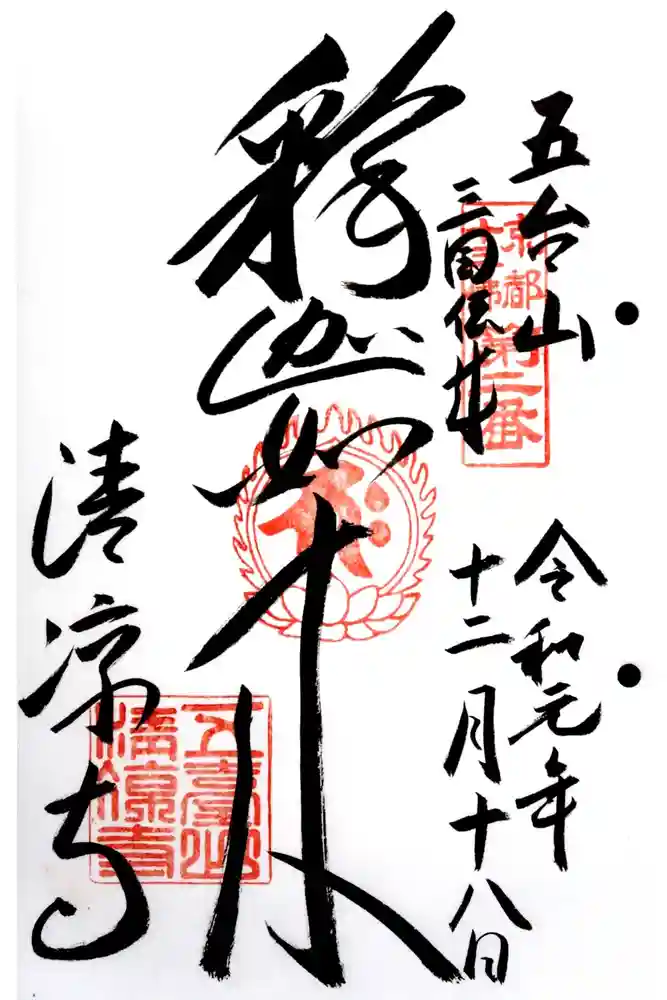 五台山
三国伝来
京都
十三佛
第二番
令和元年
十二月十八日
釈迦如来
清凉寺
五臺山
清涼寺